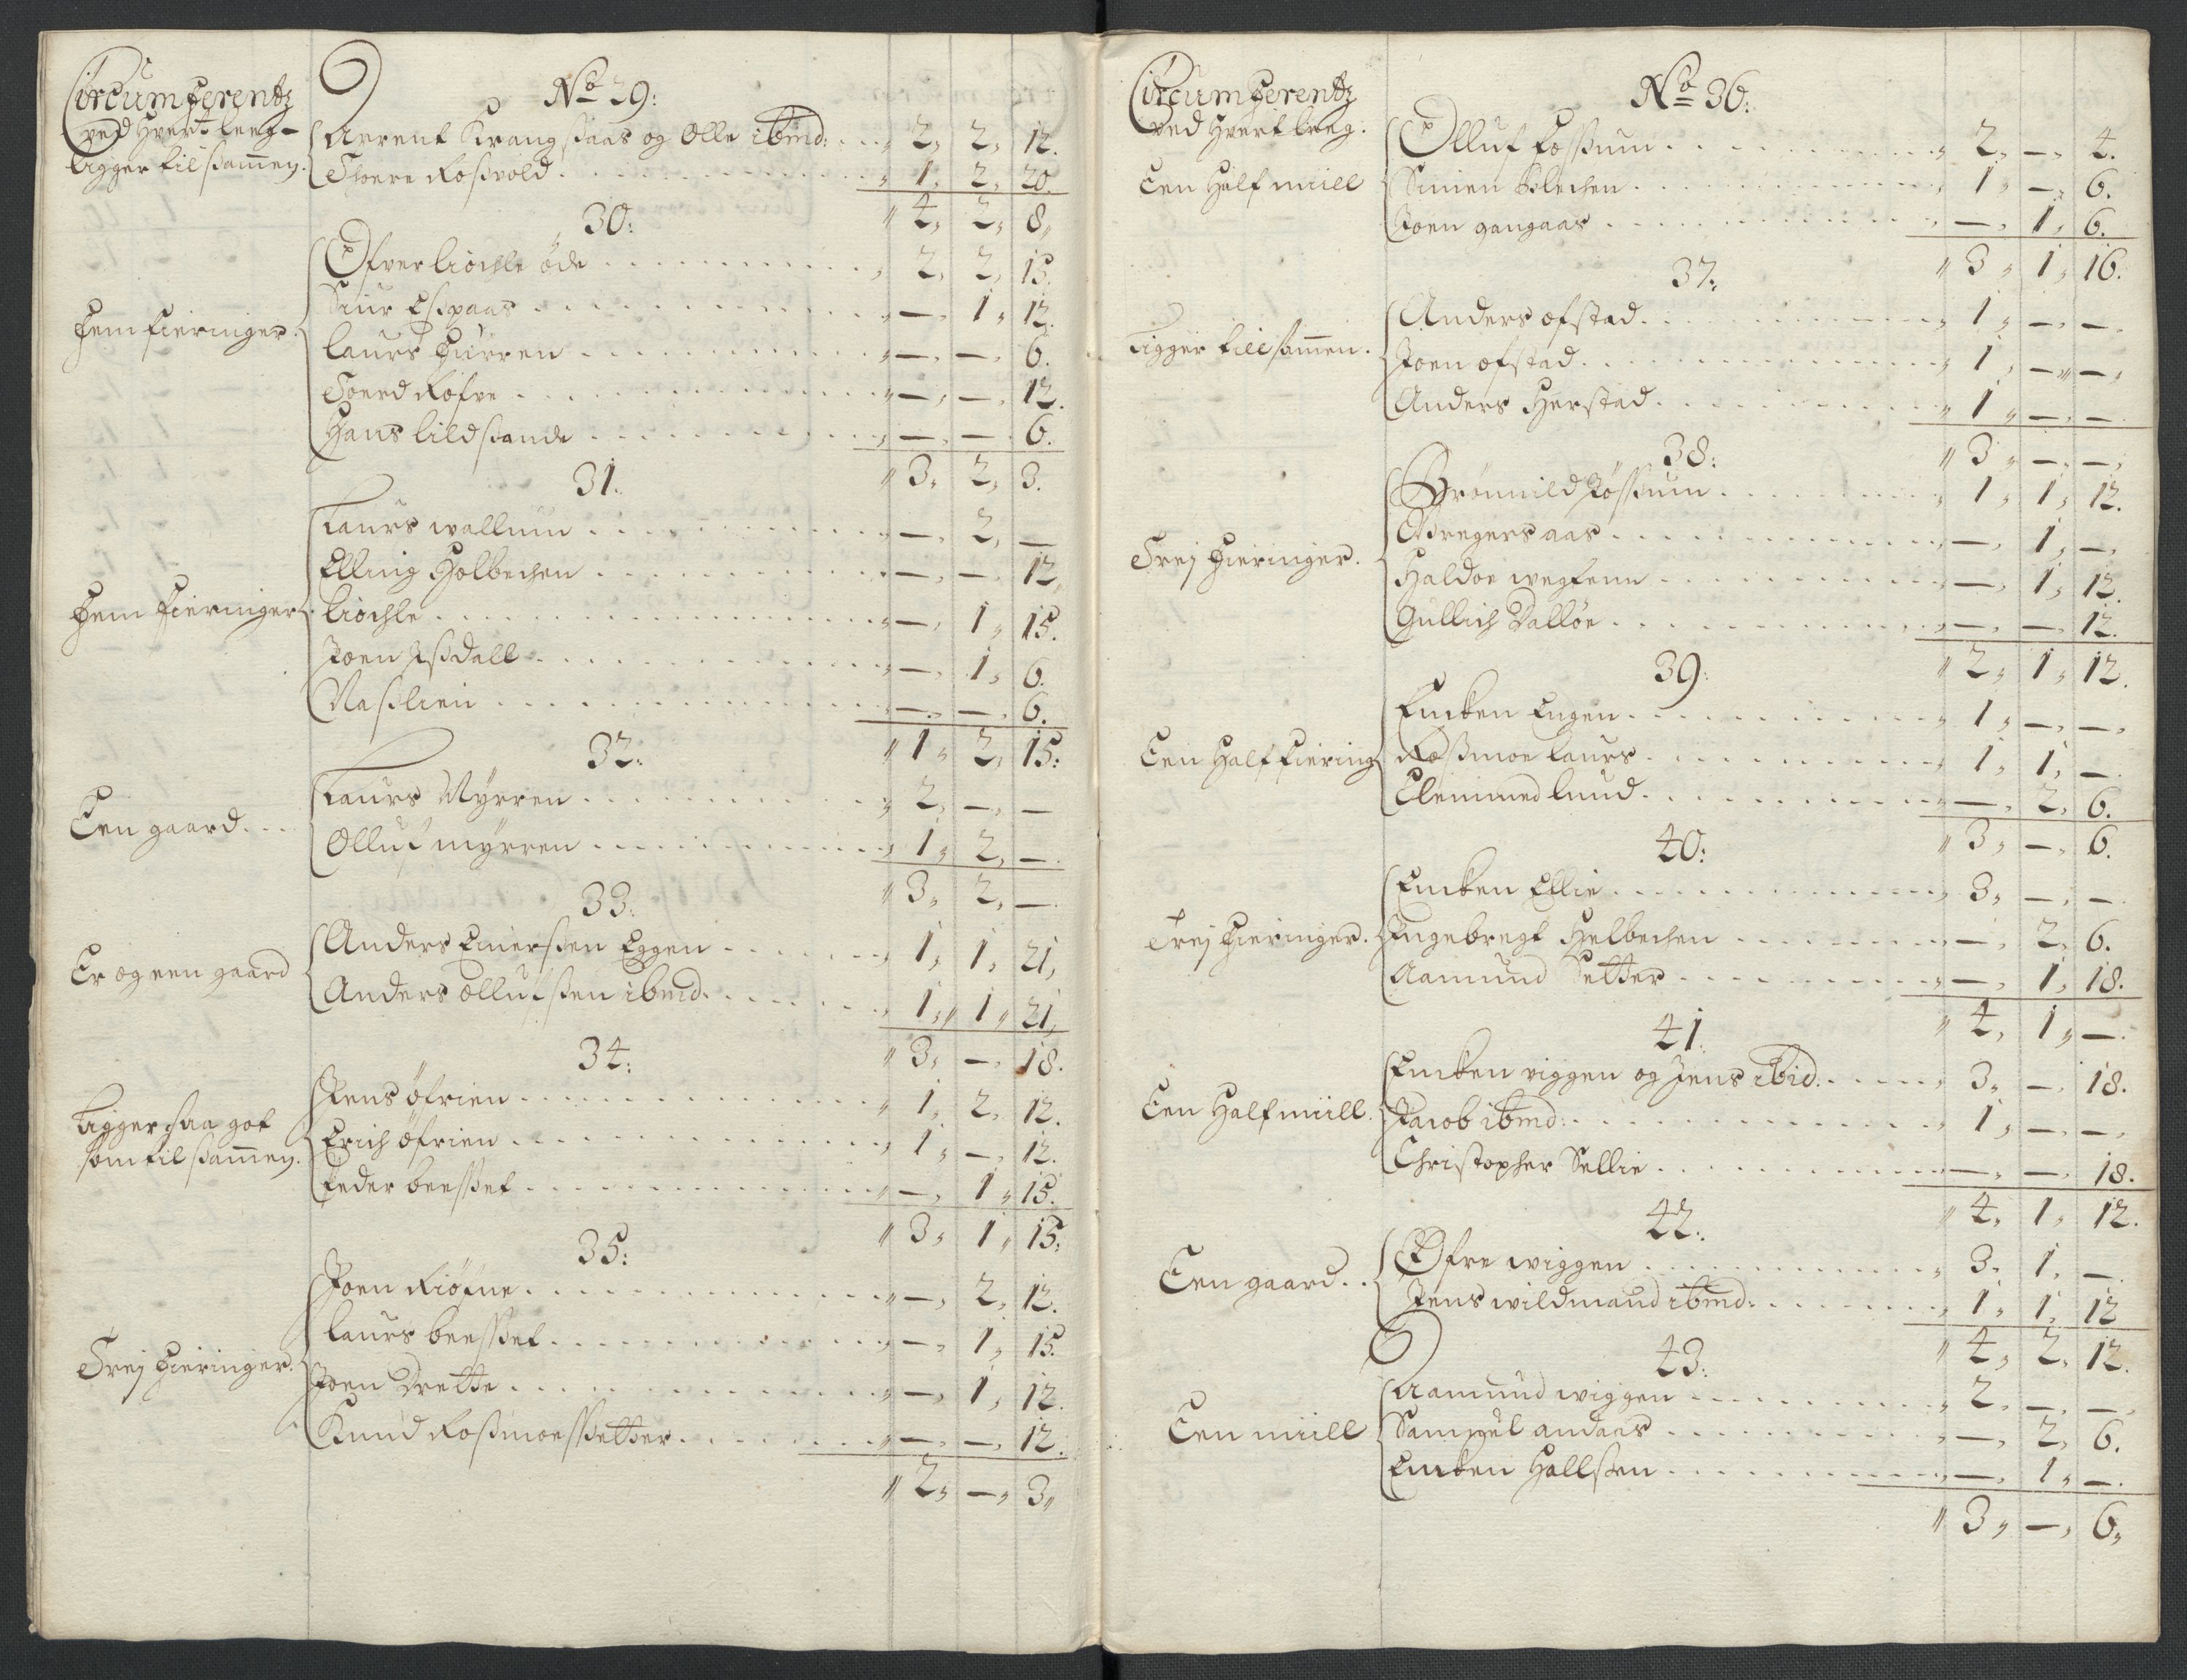 Circumferentz
ved hvert leeg-
ligger til sammen.
No 29:
Arrent Krangsaas og Olle ibmd: 2, 2, 12.
Thoere Rosvold 1, 2, 20.
4, 2, 8,
30:
fem fieringer.
Øfver Kiøchle öde 2, 2, 15.
Siur Espaas —, 1, 12.
Laurs Furren —, —, 6.
Toerd Rofve —, —, 12.
Hans Lildsande —, —, 6.
3, 2, 3.
31.
fem fieringer
Laurs wallum —, 2, —
Elling Holbechen —, —, 12,
Kiøchle —, 1, 15.
Joen Isdall —, 1, 6.
Naslien —, —, 6.
1, 2, 15:
32:
Een gaard
Laurs Myrren 2, —, —
Olluf myrren 1, 2, —.
3, 2, —.
33:
Er og een gaard
Anders Einersen Eggen 1, 1, 21,
Anders ollufsen ibmd. 1, 1, 21,
3, —, 18.
34:
ligger saa got
som til sammen.
Jens öfrien 1, 2, 12.
Erich öfrien 1, —, 12.
Peder beesset —, 1, 15.
3, 1, 15:
35:
Trej fieringer.
Joen Riøfne —, 2, 12.
Laurs beesset —, 1, 15.
Joen Drette —, 1, 12.
Knud Rosmoessetter —, —, 12.
2, —, 3,
Circumferentz
ved hvert leeg.
No 36:
Een half miill
Olluf Fossum 2, —, 4.
Simen Blechen 1, —, 6.
Joen gangaas —, 1, 6.
3, 1, 16.
37:
Ligger till sammen.
Anders ofstad 1, —, —.
Joen ofstad 1, —, —,
Anders Herstad 1, —, —
3, —, —,
38:
Trej fieringer.
Brönnild Fössum 1, 1, 12.
Gregers aas —, 1, —,
Haldoe wegfenn —, 1, 12.
Gullich Dalløe —, —, 12.
2, 1, 12.
39:
Een half fiering
Encken Engen 1, —, —,
Rosmoe Laurs 1, 1, —.
Clemmed lund —, 2, 6.
3, —, 6.
40:
Trej fieringer.
Encken Ellie 3, —, —.
Ingebregt Helbechen —, 2, 6.
Aamund Setter —, 1, 18.
4, 1, —.
41.
Een half miill.
Encken viggen og Jens ibid: 3, —, 18.
Jacob ibmd: 1, —, —,
Christopher Sellie —, —, 18.
4, 1, 12.
42:
Een gaard
Øfre wiggen 3, 1, —.
Jens wildmand ibmd: 1, 1, 12
4, 2, 12.
43:
Een miill
Aamund wiggen 2, —, —.
Samuel andaas —, 2, 6.
Encken Hallsen —, 1, —.
3, —, 6,